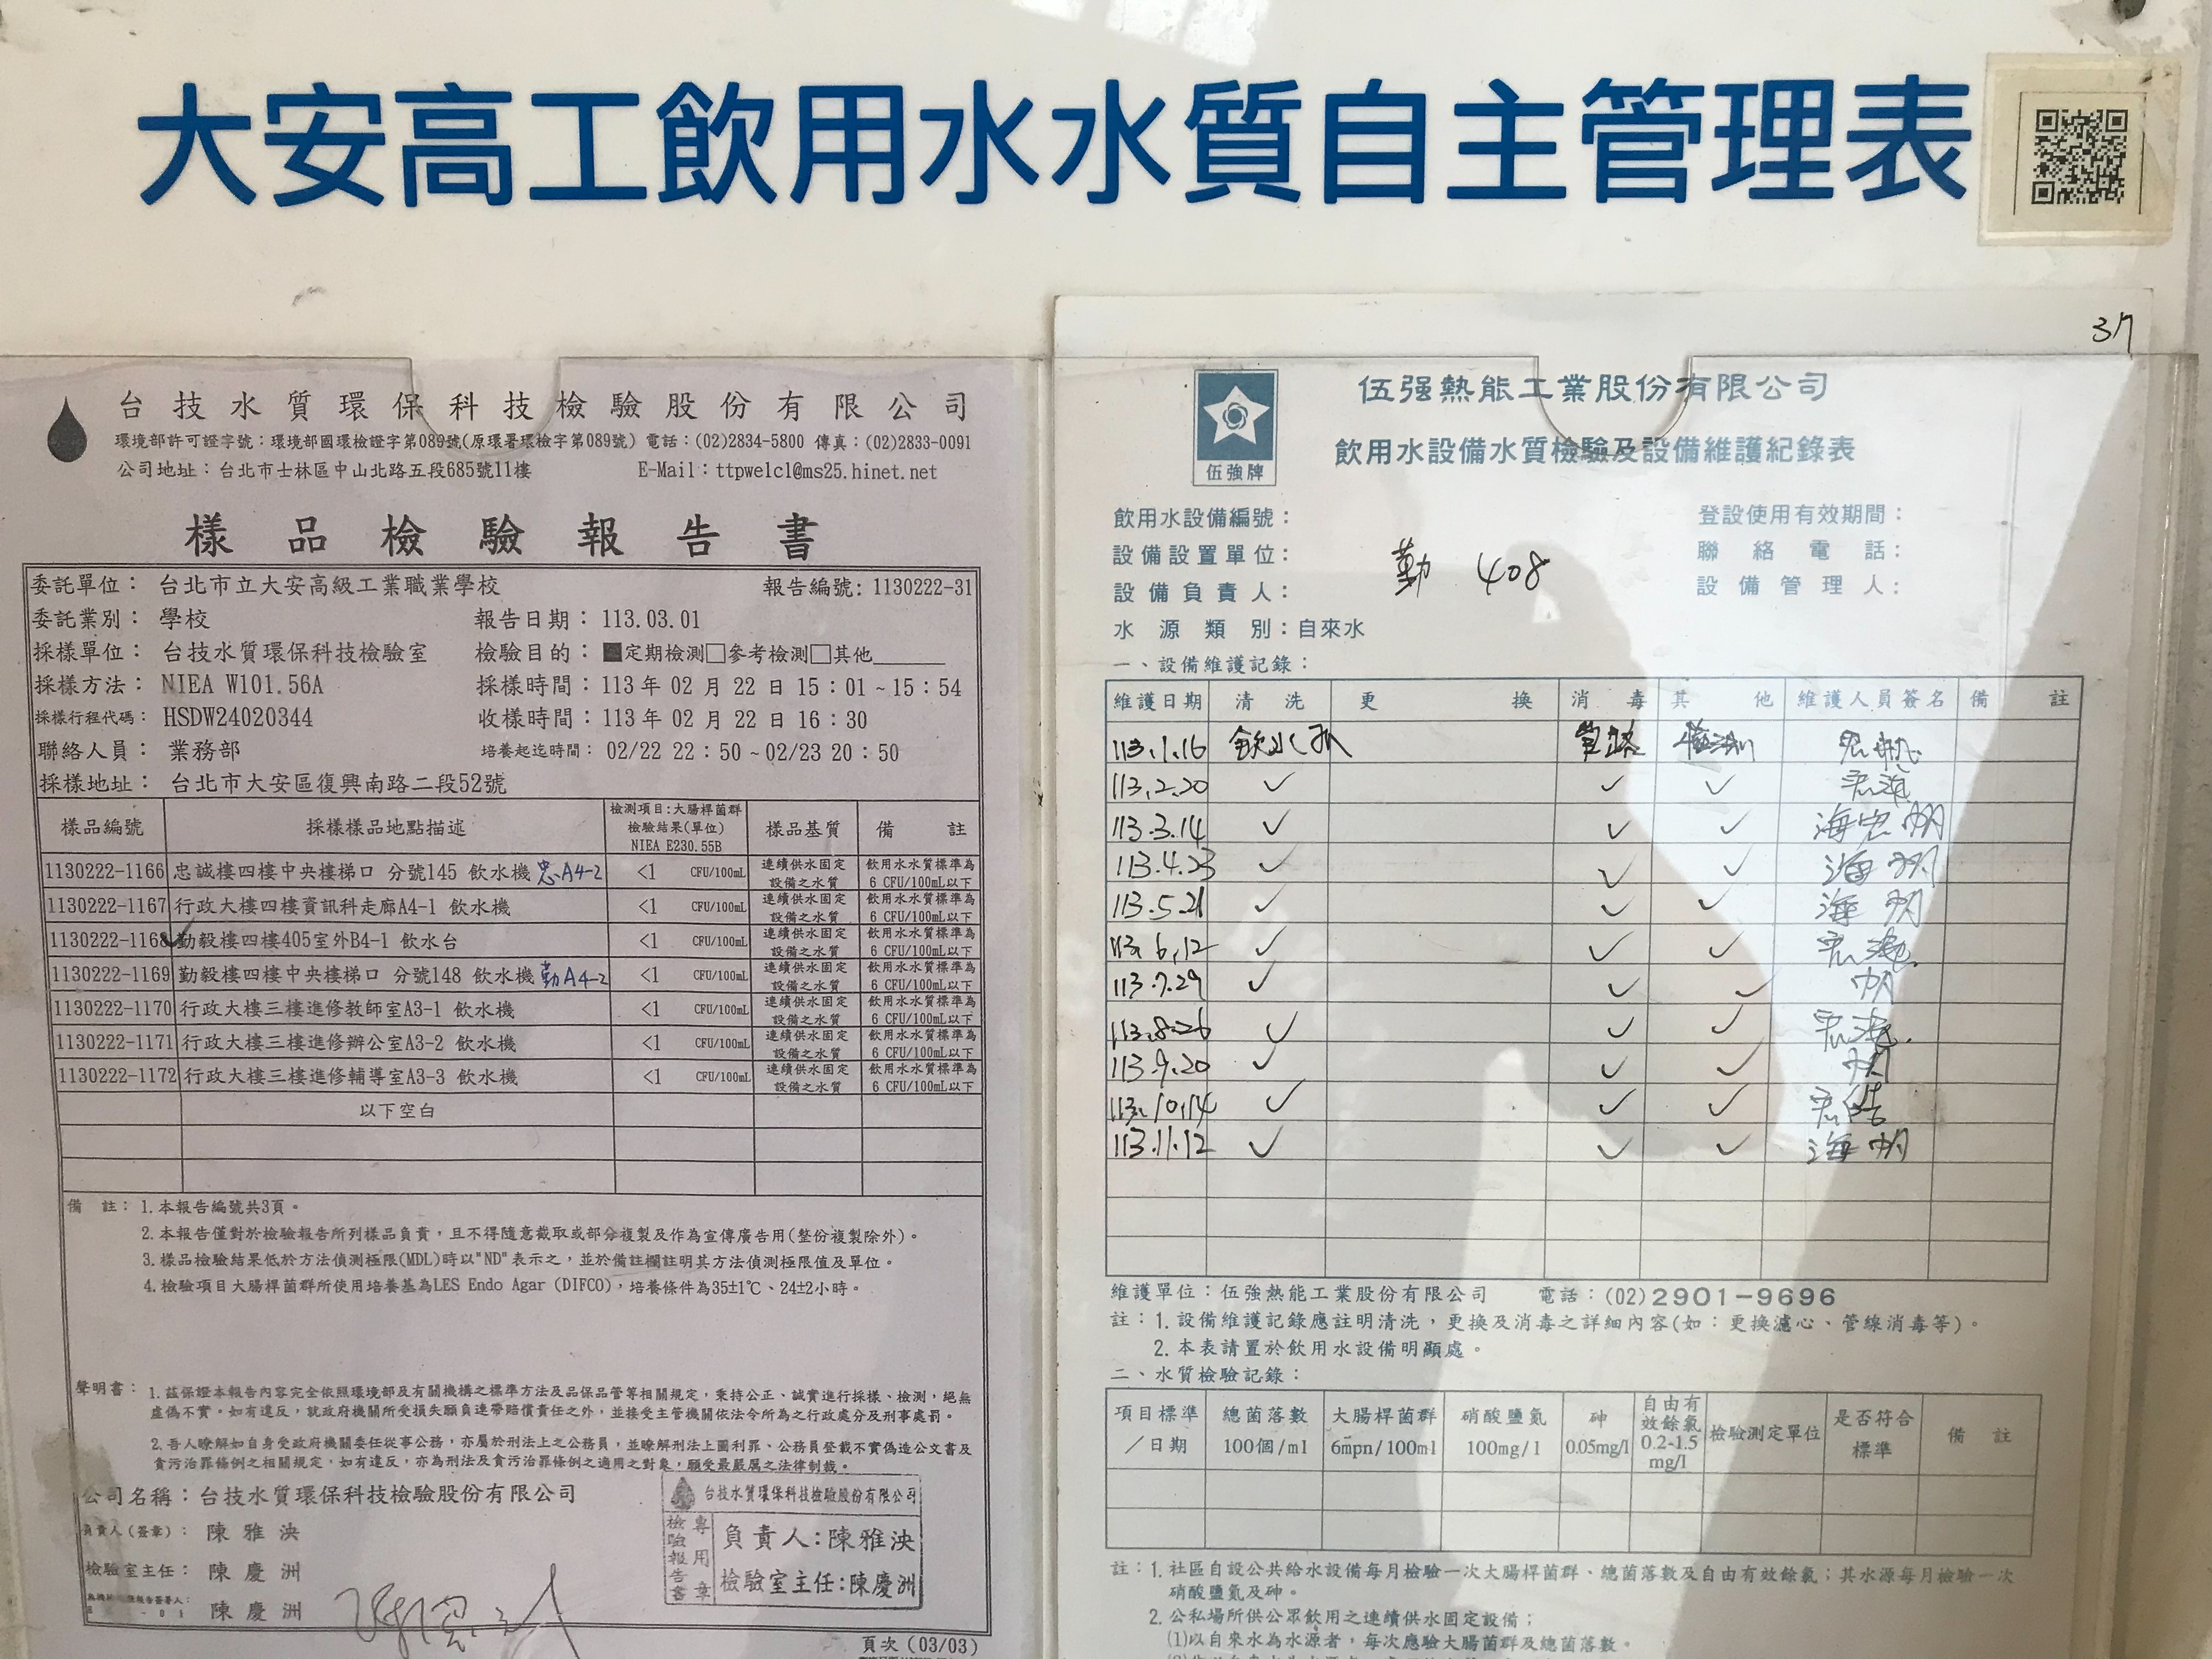 大安高工飲用水水質自主管理表
台技水質環保科技檢驗股份有限公司
環境部許可證字號：環境部國環檢證字第089號(原環署環檢字第089號) 電話：(02)2834-5800 傳真：(02)2833-0091
公司地址：台北市士林區中山北路五段685號11樓 E-Mail：ttpwelcl@ms25.hinet.net
樣品檢驗報告書
委託單位：台北市立大安高級工業職業學校 報告編號：1130222-31
委託業別：學校 報告日期：113.03.01
採樣單位：台技水質環保科技檢驗室 檢驗目的：■定期檢測□參考檢測□其他
採樣方法：NIEA W101.56A 採樣時間：113年02月22日15：01~15：54
採樣行程代碼：HSDW24020344 收樣時間：113年02月22日16：30
聯絡人員：業務部 培養起迄時間：02/22 22：50~02/23 20：50
採樣地址：台北市大安區復興南路二段52號
樣品編號 採樣樣品地點描述 檢測項目:大腸桿菌群 檢驗結果(單位) NIEA E230.55B 樣品基質 備註
1130222-1166 忠誠樓四樓中央樓梯口 分號145 飲水機 忠A4-2 <1 CFU/100mL 連續供水固定設備之水質 飲用水水質標準為6 CFU/100mL以下
1130222-1167 行政大樓四樓資訊科走廊A4-1 飲水機 <1 CFU/100mL 連續供水固定設備之水質 飲用水水質標準為6 CFU/100mL以下
1130222-1168 勤毅樓四樓405室外B4-1 飲水台 <1 CFU/100mL 連續供水固定設備之水質 飲用水水質標準為6 CFU/100mL以下
1130222-1169 勤毅樓四樓中央樓梯口 分號148 飲水機 勤A4-2 <1 CFU/100mL 連續供水固定設備之水質 飲用水水質標準為6 CFU/100mL以下
1130222-1170 行政大樓三樓進修教師室A3-1 飲水機 <1 CFU/100mL 連續供水固定設備之水質 飲用水水質標準為6 CFU/100mL以下
1130222-1171 行政大樓三樓進修辦公室A3-2 飲水機 <1 CFU/100mL 連續供水固定設備之水質 飲用水水質標準為6 CFU/100mL以下
1130222-1172 行政大樓三樓進修輔導室A3-3 飲水機 <1 CFU/100mL 連續供水固定設備之水質 飲用水水質標準為6 CFU/100mL以下
以下空白
備註：1.本報告編號共3頁。
2.本報告僅對於檢驗報告所列樣品負責，且不得隨意截取或部分複製及作為宣傳廣告用(整份複製除外)。
3.樣品檢驗結果低於方法偵測極限(MDL)時以"ND"表示之，並於備註欄註明其方法偵測極限值及單位。
4.檢驗項目大腸桿菌群所使用培養基為LES Endo Agar (DIFCO)，培養條件為35±1℃、24±2小時。
聲明書：1.茲保證本報告內容完全依照環境部及有關機構之標準方法及品保品管等相關規定，秉持公正、誠實進行採樣、檢測，絕無
虛偽不實。如有違反，就政府機關所受損失願負連帶賠償責任之外，並接受主管機關依法令所為之行政處分及刑事處罰。
2.吾人瞭解如自身受政府機關委任從事公務，亦屬於刑法上之公務員，並瞭解刑法上圖利罪、公務員登載不實偽造公文書及
貪污治罪條例之相關規定，如有違反，亦為刑法及貪污治罪條例之適用之對象，願受最嚴厲之法律制裁。
公司名稱：台技水質環保科技檢驗股份有限公司
負責人(簽章)：陳雅泱
檢驗室主任：陳慶洲
陳慶洲
台技水質環保科技檢驗股份有限公司
檢驗報告書專用章
負責人:陳雅泱
檢驗室主任:陳慶洲
頁次(03/03)
37
伍強牌
伍强熱能工業股份有限公司
飲用水設備水質檢驗及設備維護紀錄表
飲用水設備編號： 登設使用有效期間：
設備設置單位： 勤 408 聯絡電話：
設備負責人： 設備管理人：
水源類別：自來水
一、設備維護記錄：
維護日期 清洗 更換 消毒 其他 維護人員簽名 備註
113.1.16 飲水孔 管路
113.2.20 ✓ ✓ ✓
113.3.14 ✓ ✓ ✓
113.4.23 ✓ ✓ ✓
113.5.21 ✓ ✓ ✓
113.6.12 ✓ ✓ ✓
113.7.29 ✓ ✓ ✓
113.8.26 ✓ ✓ ✓
113.9.20 ✓ ✓ ✓
113.10.14 ✓ ✓ ✓
113.11.12 ✓ ✓ ✓
維護單位：伍強熱能工業股份有限公司 電話：(02)2901-9696
註：1.設備維護記錄應註明清洗，更換及消毒之詳細內容(如：更換濾心、管線消毒等)。
2.本表請置於飲用水設備明顯處。
二、水質檢驗記錄：
項目標準／日期 總菌落數100個/ml 大腸桿菌群6mpn/100ml 硝酸鹽氮100mg/l 砷0.05mg/l 自由有效餘氯0.2-1.5mg/l 檢驗測定單位 是否符合標準 備註
註：1.社區自設公共給水設備每月檢驗一次大腸桿菌群、總菌落數及自由有效餘氯；其水源每月檢驗一次
硝酸鹽氮及砷。
2.公私場所供公眾飲用之連續供水固定設備；
(1)以自來水為水源者，每次應驗大腸菌群及總菌落數。